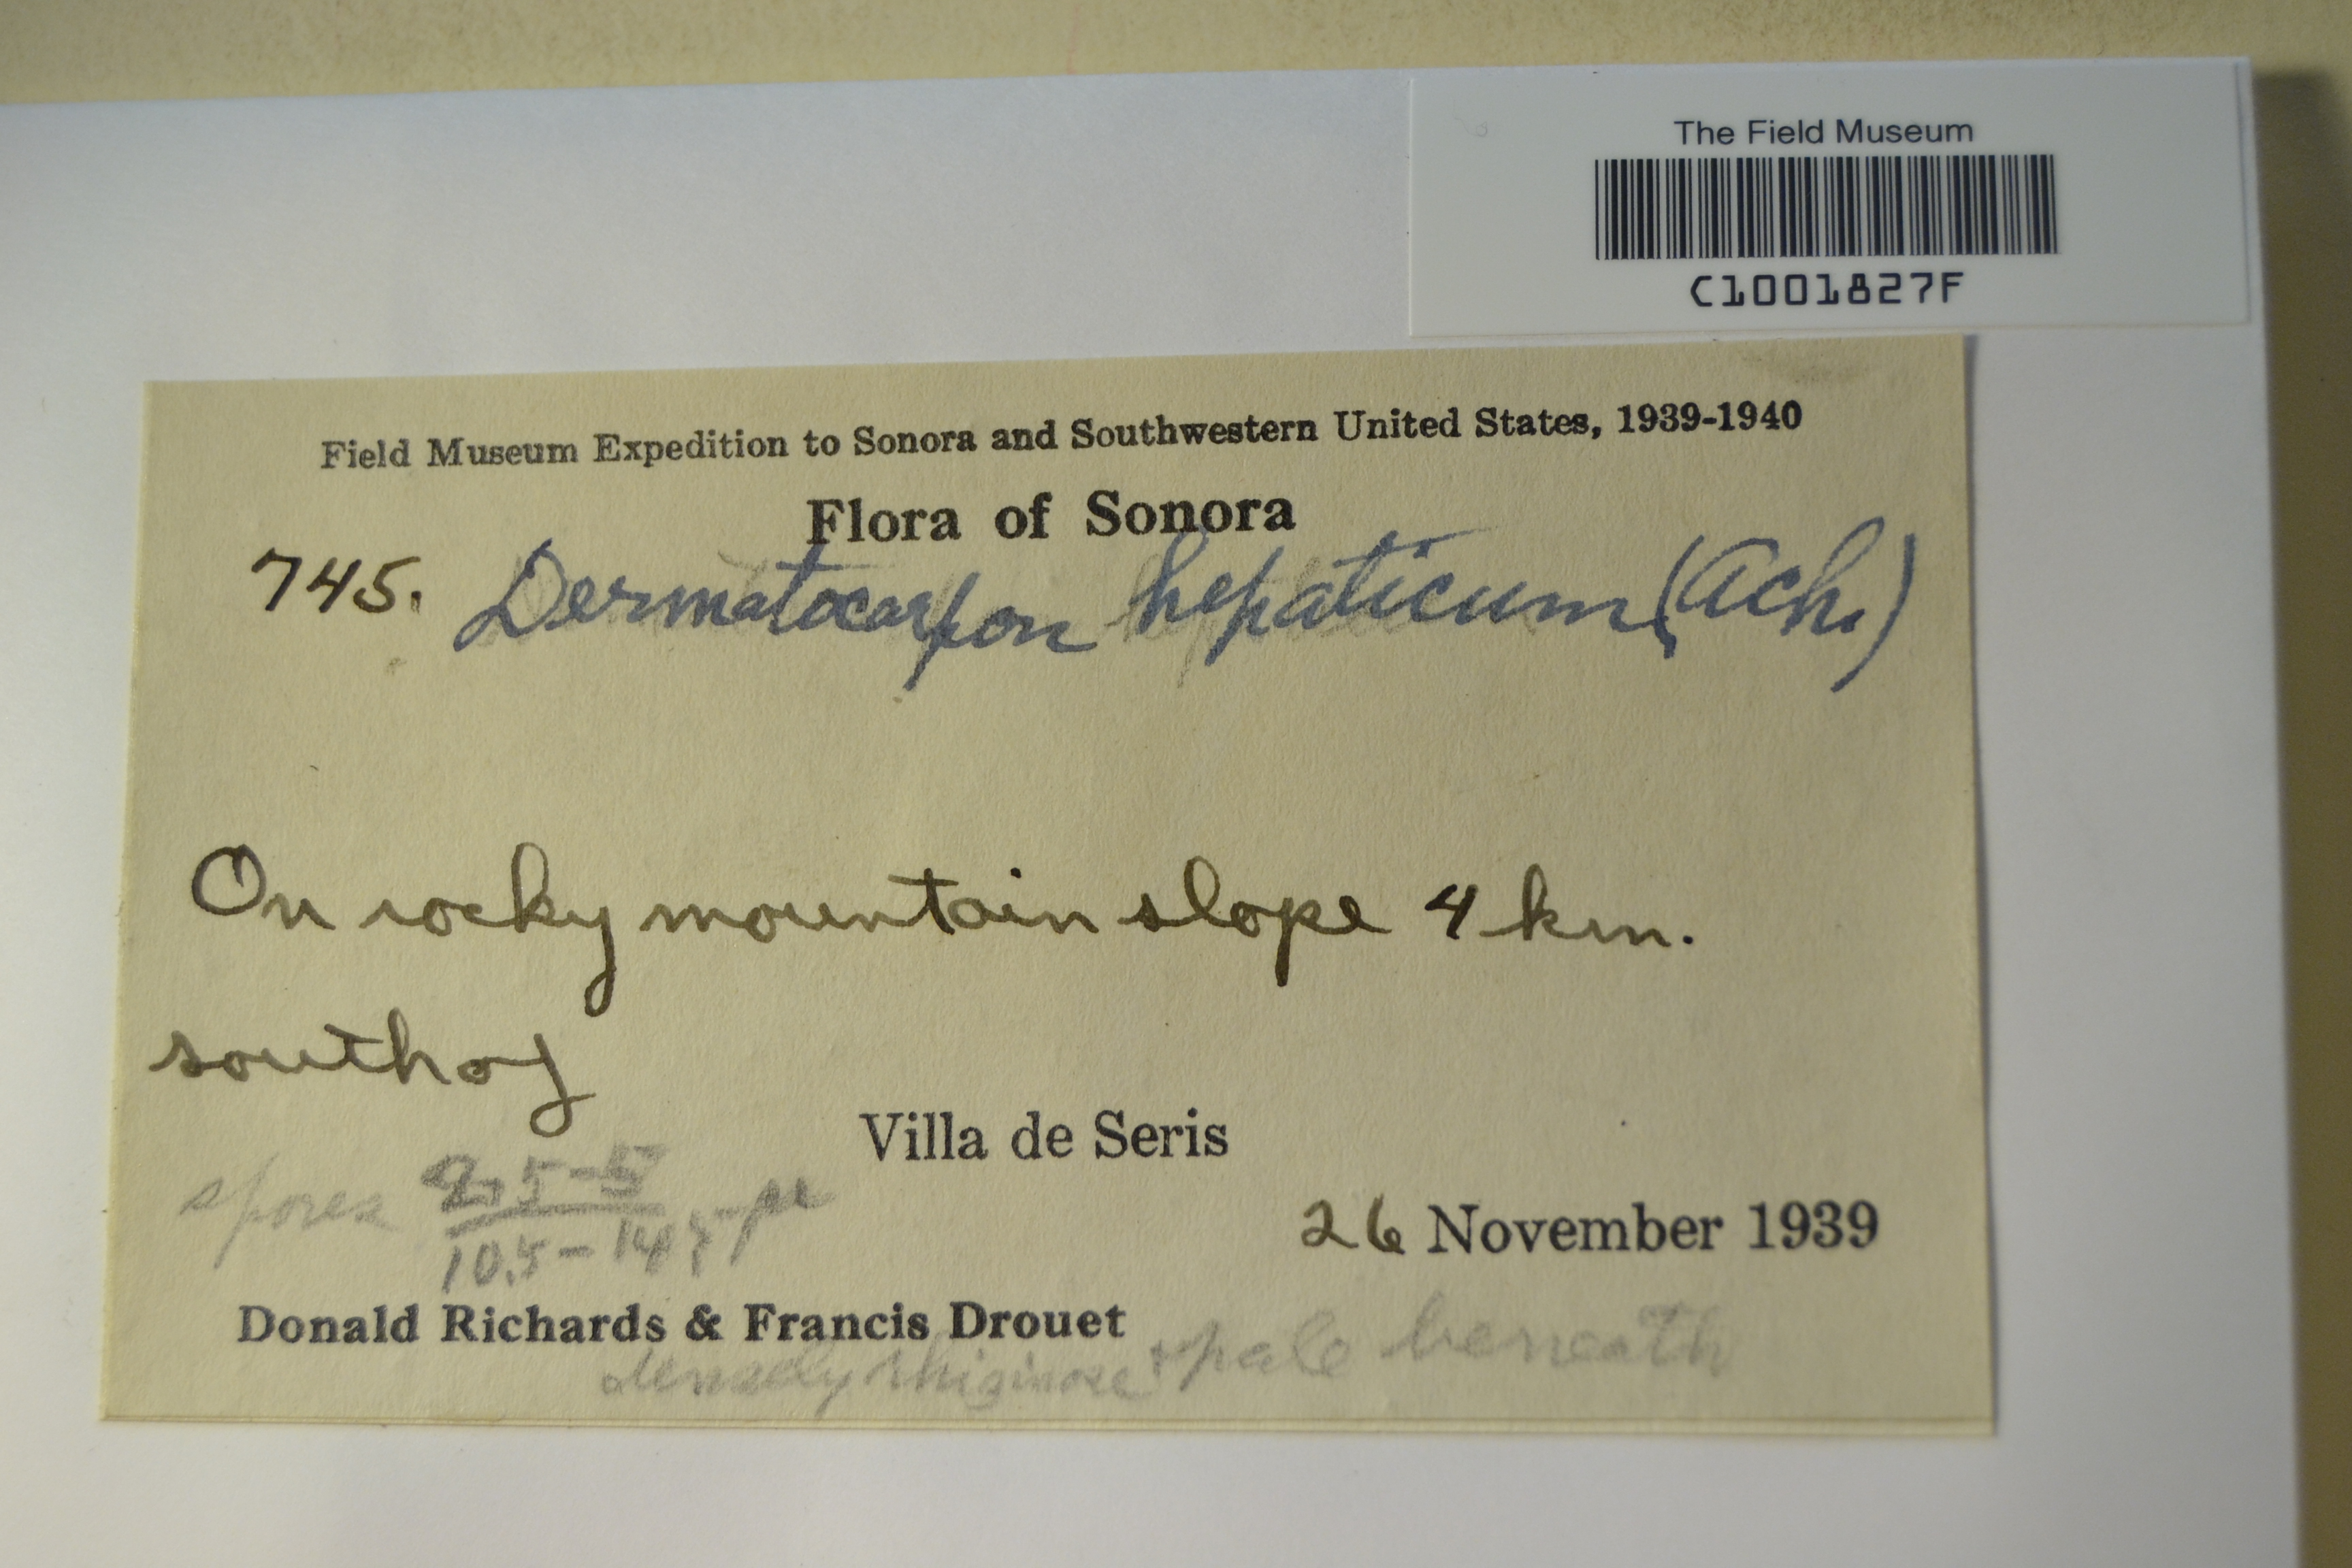 The Field Museum
C1001827F
Field Museum Expedition to Sonora and Southwestern United States, 1939-1940
Flora of Sonora
745. Dermatocarpon hepaticum (Ach.)
On rocky mountain slope 4 km.
south of
Villa de Seris
spores
10.5-14
26 November 1939
Donald Richards & Francis Drouet
densely rhizinose + pale beneath